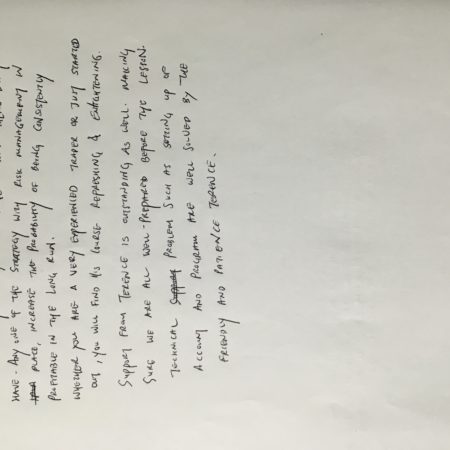 HAVE. ANY ONE OF THE STRATEGY WITH RISK MANAGEMENT IN
PLACE, INCREASE THE PROBABILITY OF BEING CONSISTENTLY
PROFITABLE IN THE LONG RUN.
WHETHER YOU ARE A VERY EXPERIENCED TRADER OR JUST STARTED
OUT, YOU WILL FIND HIS COURSE REFRESHING & ENLIGHTENING.
SUPPORT FROM TERENCE IS OUTSTANDING AS WELL. MAKING
SURE WE ARE ALL WELL-PREPARED BEFORE THE LESSON.
TECHNICAL PROBLEM SUCH AS SETTING UP OF
ACCOUNT AND PROGRAM ARE WELL SOLVED BY THE
FRIENDLY AND PATIENCE TERENCE.